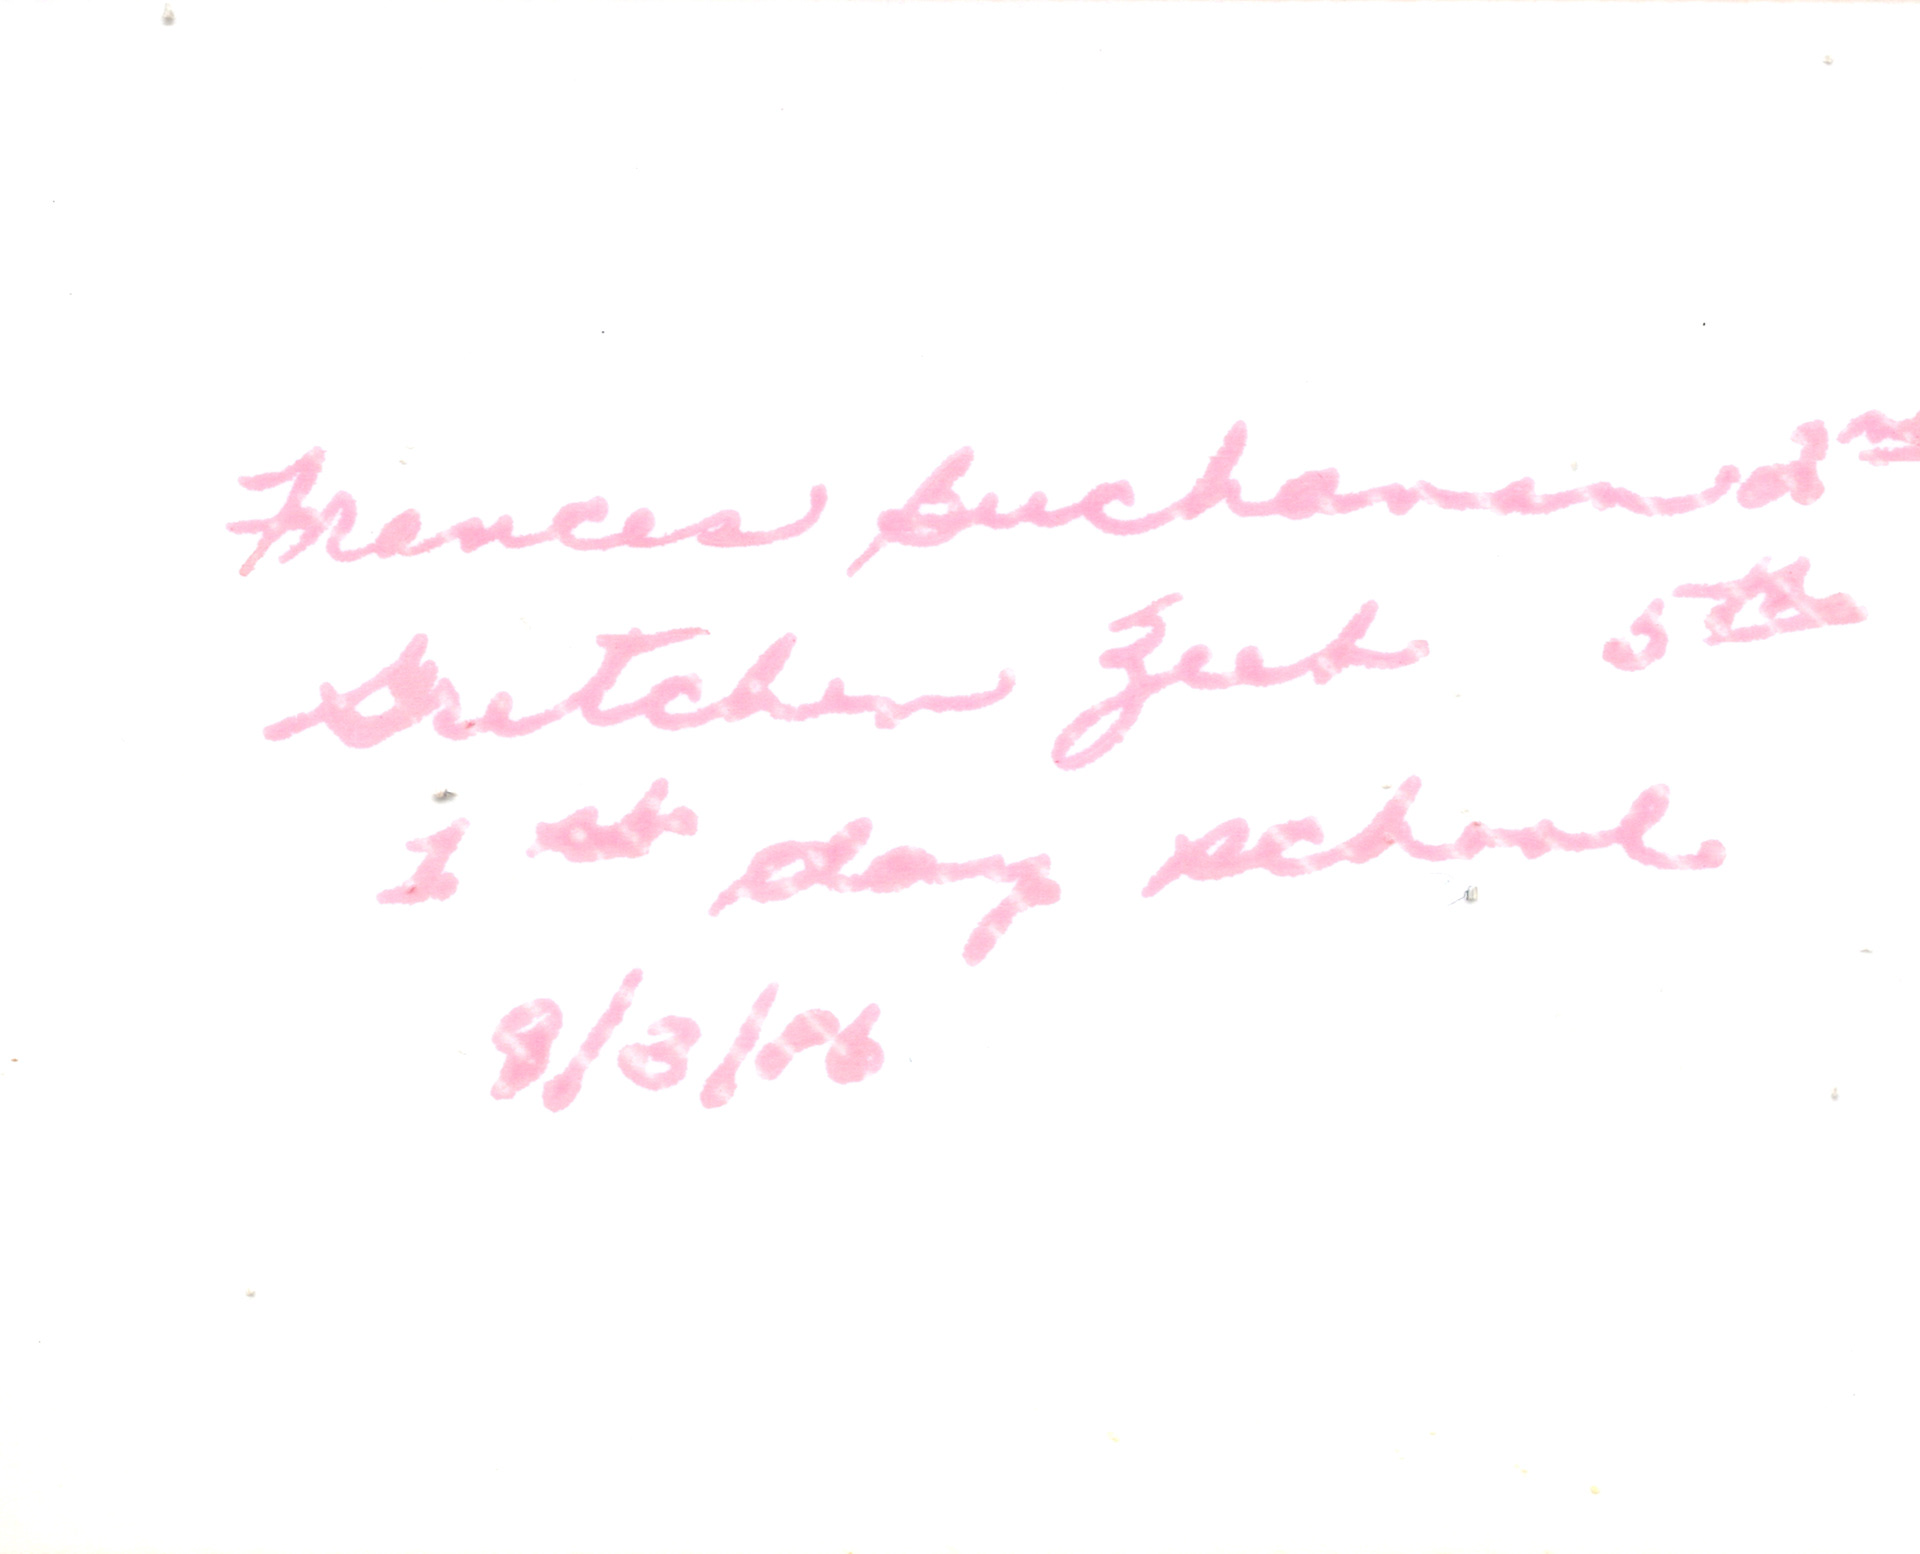 Frances Buchanan 2nd
Gretchen Zeek 5th
1st day school
8/3/06